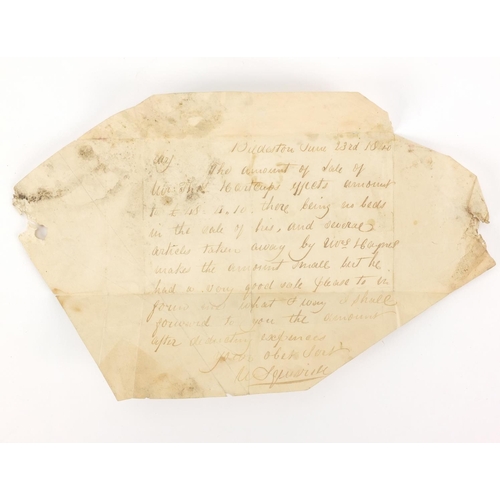 Decr 23rd 1840
Sir
The amount of Sale of
effects amount
to £ there being no beds
in the sale of his, and several
articles taken away by
makes the amount small but he
had a very good sale please to in
form me what way I shall
forward to you the amount
after deducting expenses
Your obedt Sert